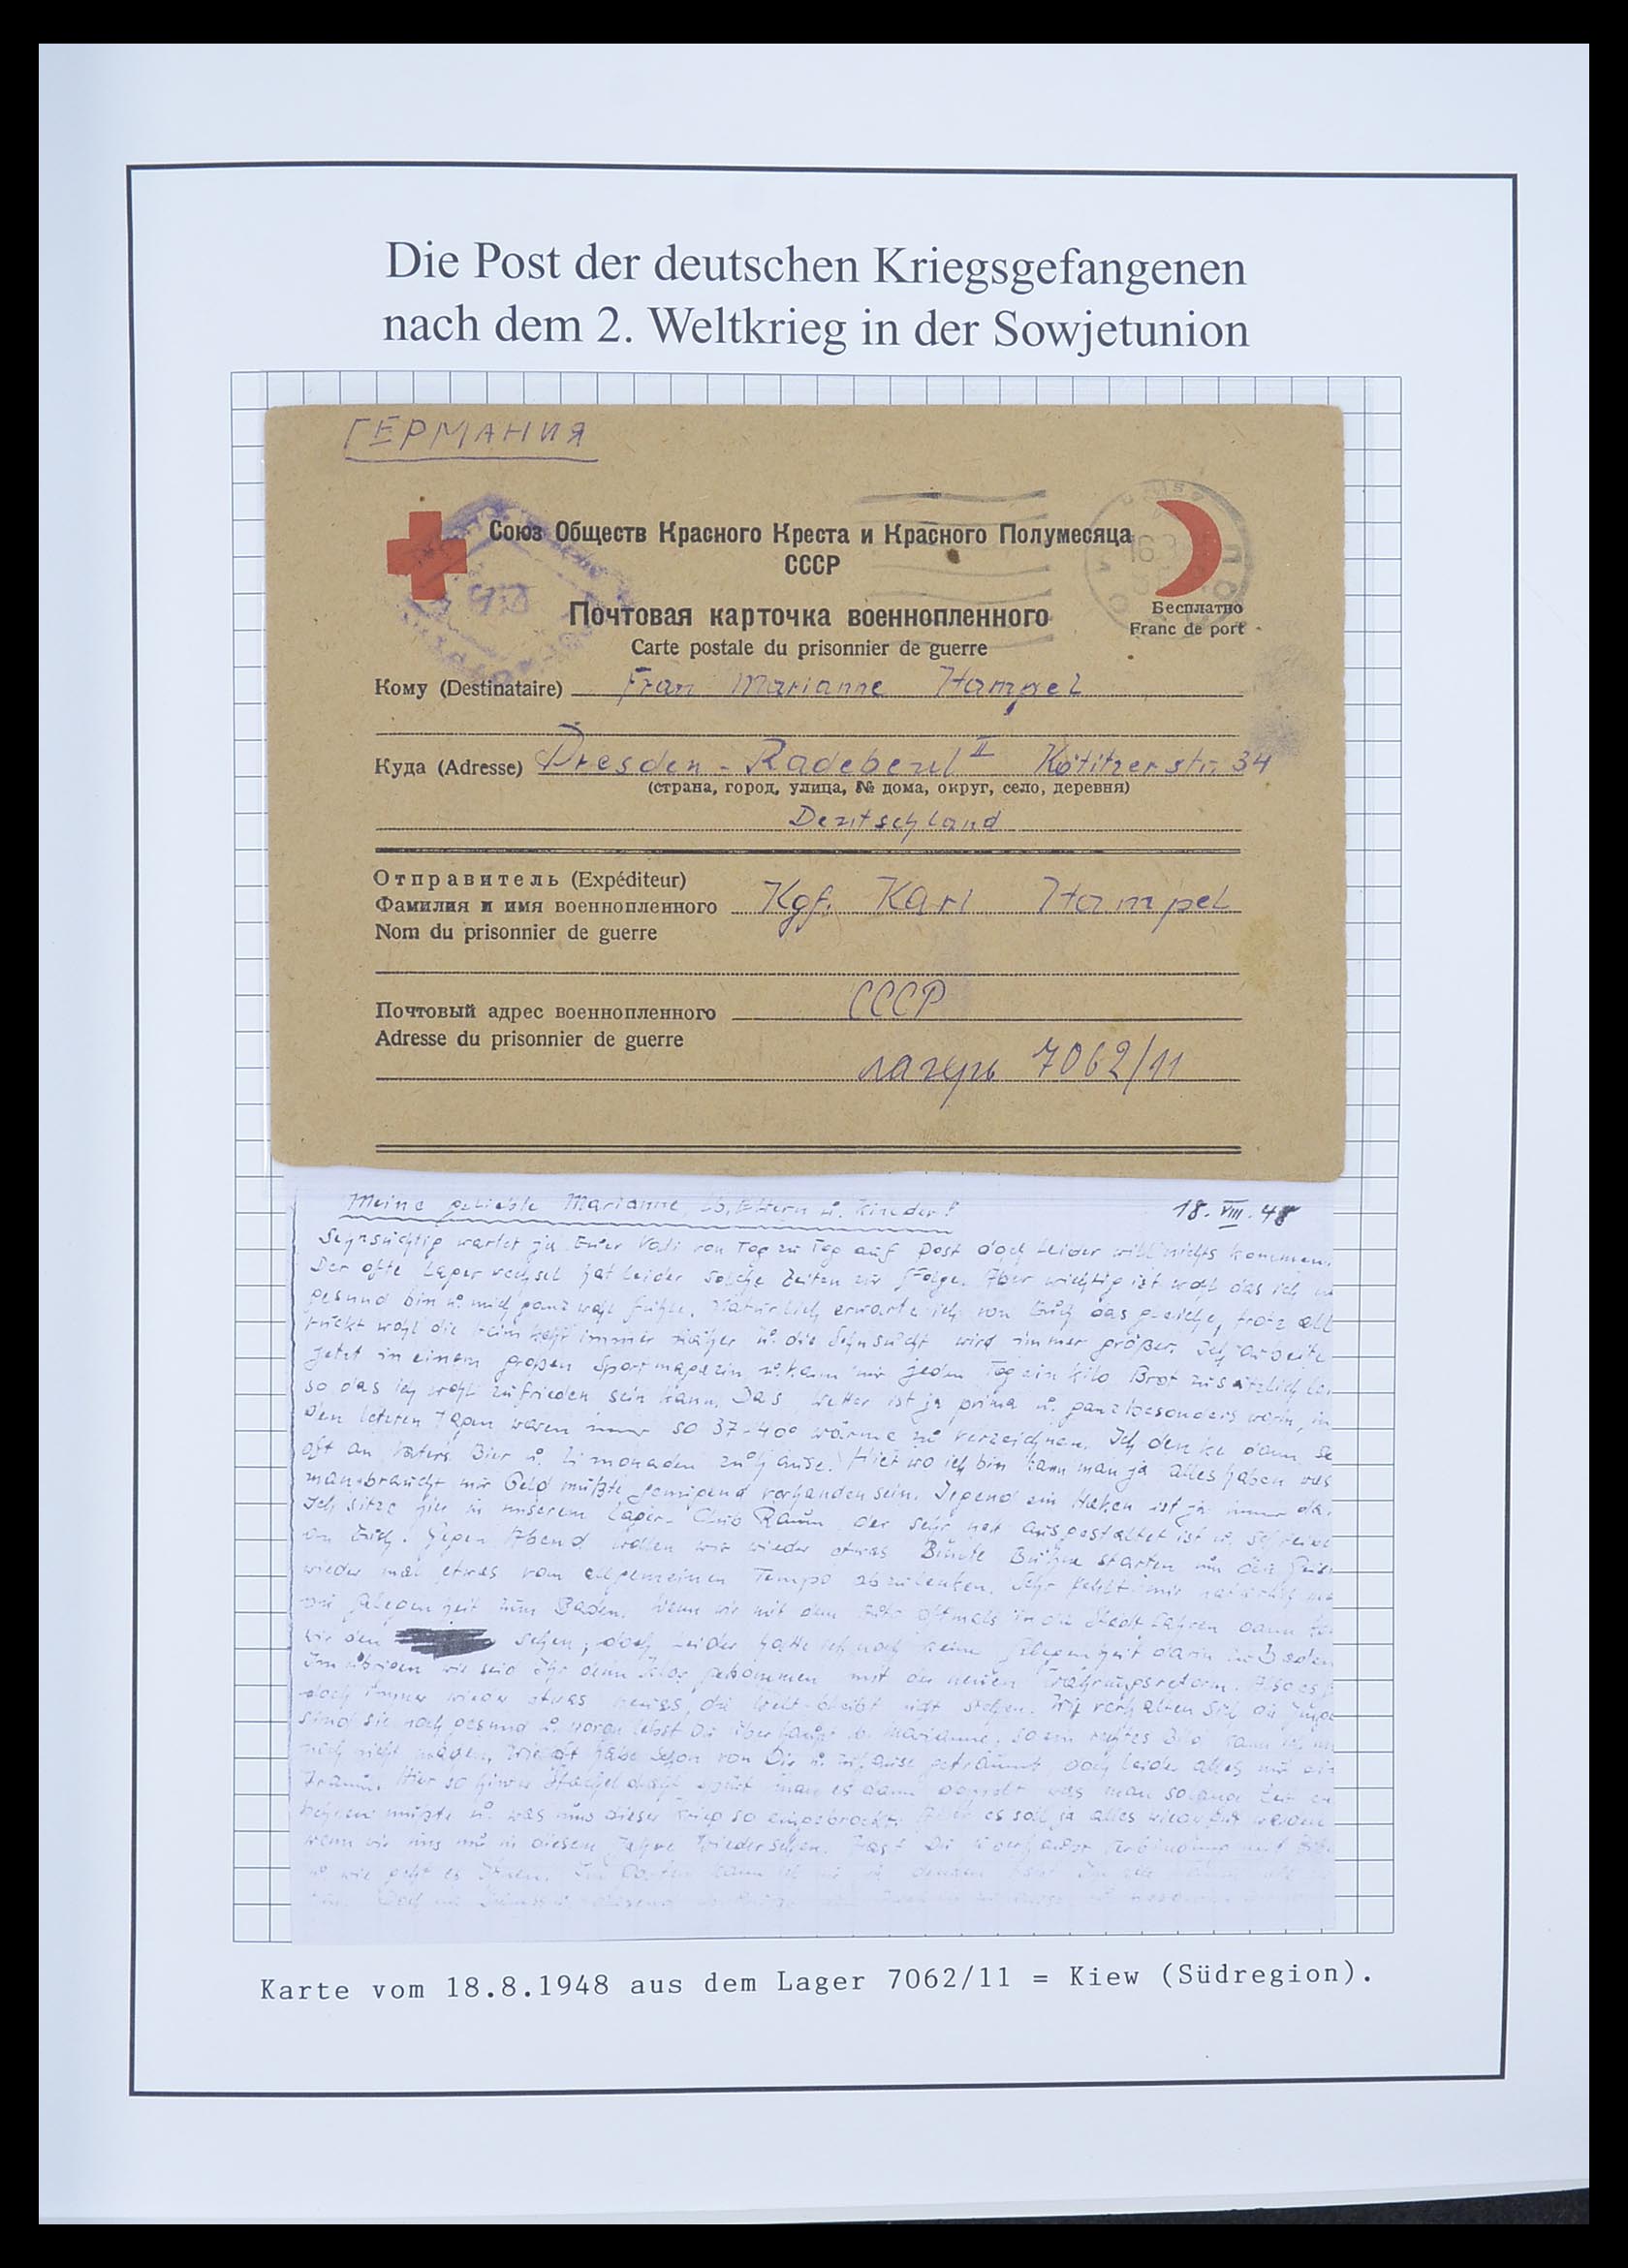 Die Post der deutschen Kriegsgefangenen
nach dem 2. Weltkrieg in der Sowjetunion
ГЕРМАНИЯ
Союз Обществ Красного Креста и Красного Полумесяца
СССР
Почтовая карточка военнопленного
Бесплатно
Franc de port
Carte postale du prisonnier de guerre
Кому (Destinataire) Frau Marianne Hampel
Куда (Adresse) Dresden - Radebeul II Kötitzerstr. 34
(страна, город, улица, № дома, округ, село, деревня)
Deutschland
Отправитель (Expéditeur)
Фамилия и имя военнопленного Kgf. Karl Hampel
Nom du prisonnier de guerre
Почтовый адрес военнопленного СССР
Adresse du prisonnier de guerre
лагерь 7062/11
Meine geliebte Marianne, lb. Eltern u. Kinder! 18. VIII. 48
Sehnsüchtig wartet ja Euer Vati von Tag zu Tag auf Post doch leider will nichts kommen.
Der ofte Lagerwechsel hat leider solche Zeiten zur Folge. Aber wichtig ist wohl das ich
gesund bin u. mich ganz wohl fühle. Natürlich erwarte ich von Euch das gleiche, trotz all
rückt wohl die Heimkehr immer näher u. die Sehnsucht wird immer größer. Ich arbeite
jetzt in einem großen Sportmagazin u. kann mir jeden Tag ein kilo Brot zusätzlich
so das ich wohl zufrieden sein kann. Das Wetter ist ja prima u. ganz besonders warm, in
den leteren Tagen waren so 37-40° wärme zu verzeichnen. Ich denke dann
oft an Vaters Bier u. Limonaden zuhause. Hier wo ich bin kann man ja alles haben was
man braucht nur Geld müßte genügend vorhanden sein. Irgend ein Haken ist ja immer da.
Ich sitze hier in unserem Lager-Club Raum der sehr nett ausgestaltet ist u. schreibe
an Euch. Gegen Abend wollen wir wieder etwas Bunte Bühne starten um den
wieder mal etwas vom allgemeinen Tempo abzulenken. Sehr fehlt mir natürlich
die Gelegenheit zum Baden. Wenn wir mit dem Auto oftmals in die Stadt fahren dann
wir den sehen, doch leider hatte ich noch keine Gelegenheit darin zu Baden
Im übrigen wie seid Ihr denn klar gekommen mit der neuen Währungsreform.
doch immer wieder etwas neues, die Welt bleibt nicht stehen. Wie verhalten sich die
sind sie noch gesund u. wovon lebst Du überhaupt lb. Marianne, so ein rechtes Bild kann ich
noch nicht Wie oft habe schon von Dir u. zuhause geträumt doch leider alles nur ein
Traum. Hier so hinter Stacheldraht spürt man es dann doppelt was man solange Zeit
mußte u. was uns dieser Krieg so eingebrockt. es soll ja alles wieder gut werden
wenn wir uns nur in diesem Jahre Wiedersehen. Hast Du überhaupt Verbindung mit
u. wie geht es Ihnen.
Karte vom 18.8.1948 aus dem Lager 7062/11 = Kiew (Südregion).